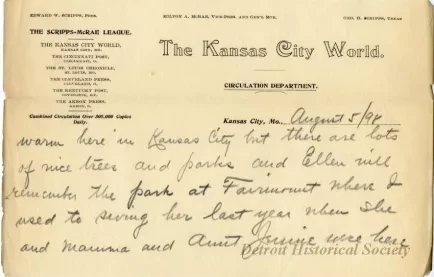 EDWARD W. SCRIPPS, PRES.
MILTON A. McRAE, VICE-PRES. AND GEN'L MGR.
GEO. H. SCRIPPS, TREAS.
THE SCRIPPS-McRAE LEAGUE.
THE KANSAS CITY WORLD,
KANSAS CITY, MO.
THE CINCINNATI POST,
CINCINNATI, O.
THE ST. LOUIS CHRONICLE,
ST. LOUIS, MO.
THE CLEVELAND PRESS,
CLEVELAND, O.
THE KENTUCKY POST,
COVINGTON, KY.
THE AKRON PRESS,
AKRON, O.
Combined Circulation Over 300,000 Copies
Daily.
The Kansas City World.
CIRCULATION DEPARTMENT.
Kansas City, Mo., August 5/98
warm here in Kansas City but there are lots
of nice trees and parks and Ellen will
remember the park at Fairmount where I
used to swing her last year when she
and Mamma and Aunt Jennie were here
Detroit Historical Society